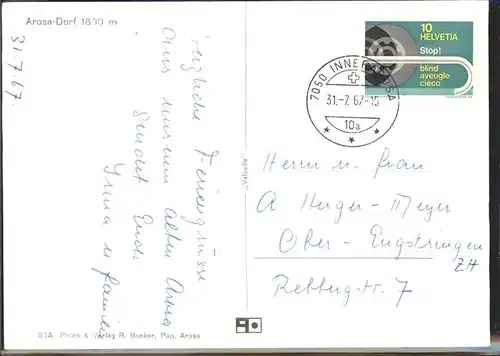 Arosa-Dorf 1800 m
31.7.67.
Herzliche Feriengrüsse
aus unserem alten Arosa
sendet Euch
Irma u. Familie
"Verbania"
10
HELVETIA
Stop!
blind
aveugle
cieco
7050 INNERAROSA
31.-7.67-15
10a
Herrn u. Frau
A Herger-Meyer
Ober-Engstringen
ZH
Rebbergstr. 7
85A Photo & Verlag R. Benker, Pap. Arosa